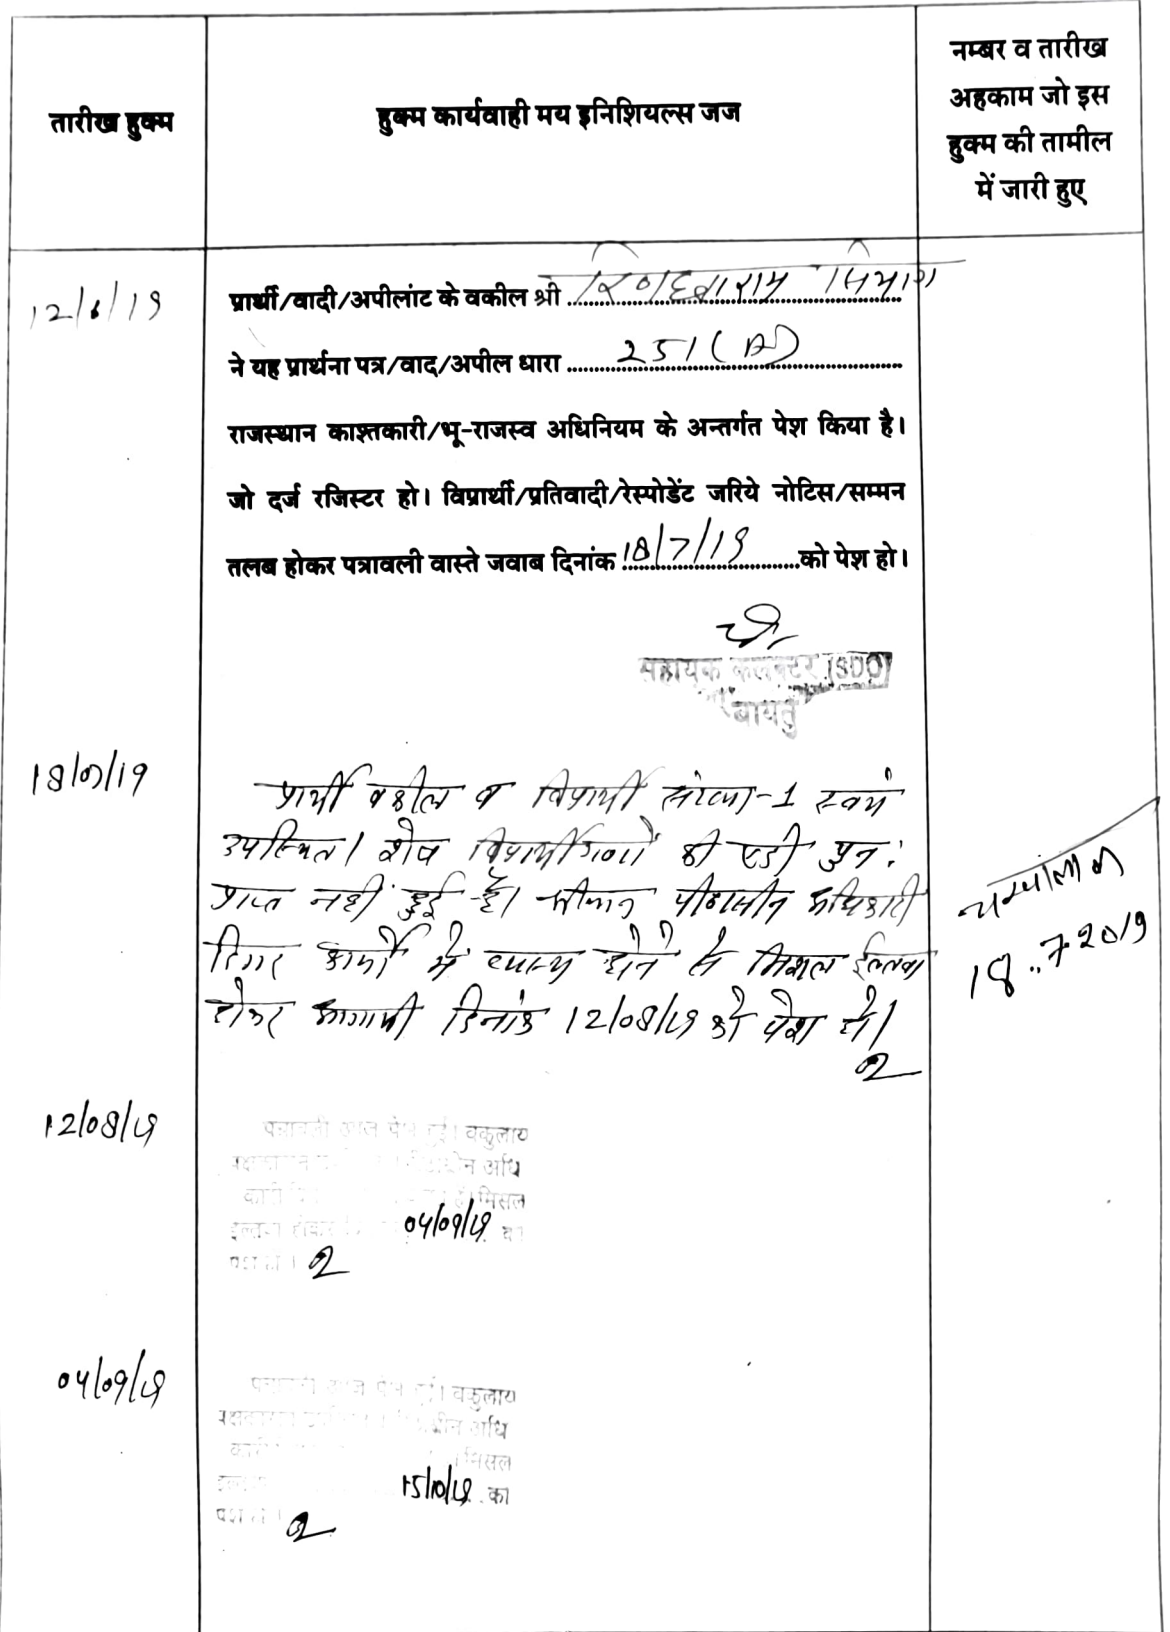 तारीख हुक्म
हुक्म कार्यवाही मय इनिशियल्स जज
नम्बर व तारीख
अहकाम जो इस
हुक्म की तामील
में जारी हुए
12/6/19
प्रार्थी/वादी/अपीलांट के वकील श्री
ने यह प्रार्थना पत्र/वाद/अपील धारा 251(A)
राजस्थान काश्तकारी/भू-राजस्व अधिनियम के अन्तर्गत पेश किया है।
जो दर्ज रजिस्टर हो। विप्रार्थी/प्रतिवादी/रेस्पोडेंट जरिये नोटिस/सम्मन
तलब होकर पत्रावली वास्ते जवाब दिनांक 18/7/19 को पेश हो।
सहायक कलक्टर (SDO)
बायतु
18/07/19
प्रार्थी वकील व विप्रार्थी संख्या-1 स्वयं
उपस्थित। शेष विप्रार्थीगणों की एडी पुन:
प्राप्त नहीं हुई है। श्रीमान पीठासीन अधिकारी
दिगर कार्यो में व्यस्थ होने से मिशल ईल्तवा
होकर आगामी दिनांक 12/08/19 को पेश हो।
18..7 2019
12/08/19
पत्रावली आज पेश हुई। वकुलाय
अधि
मिसल
इल्तवा होकर 04/09/19
04/09/19
पत्रावली आज पेश हुई। वकुलाय
अधि
मिसल
15/10/19 को